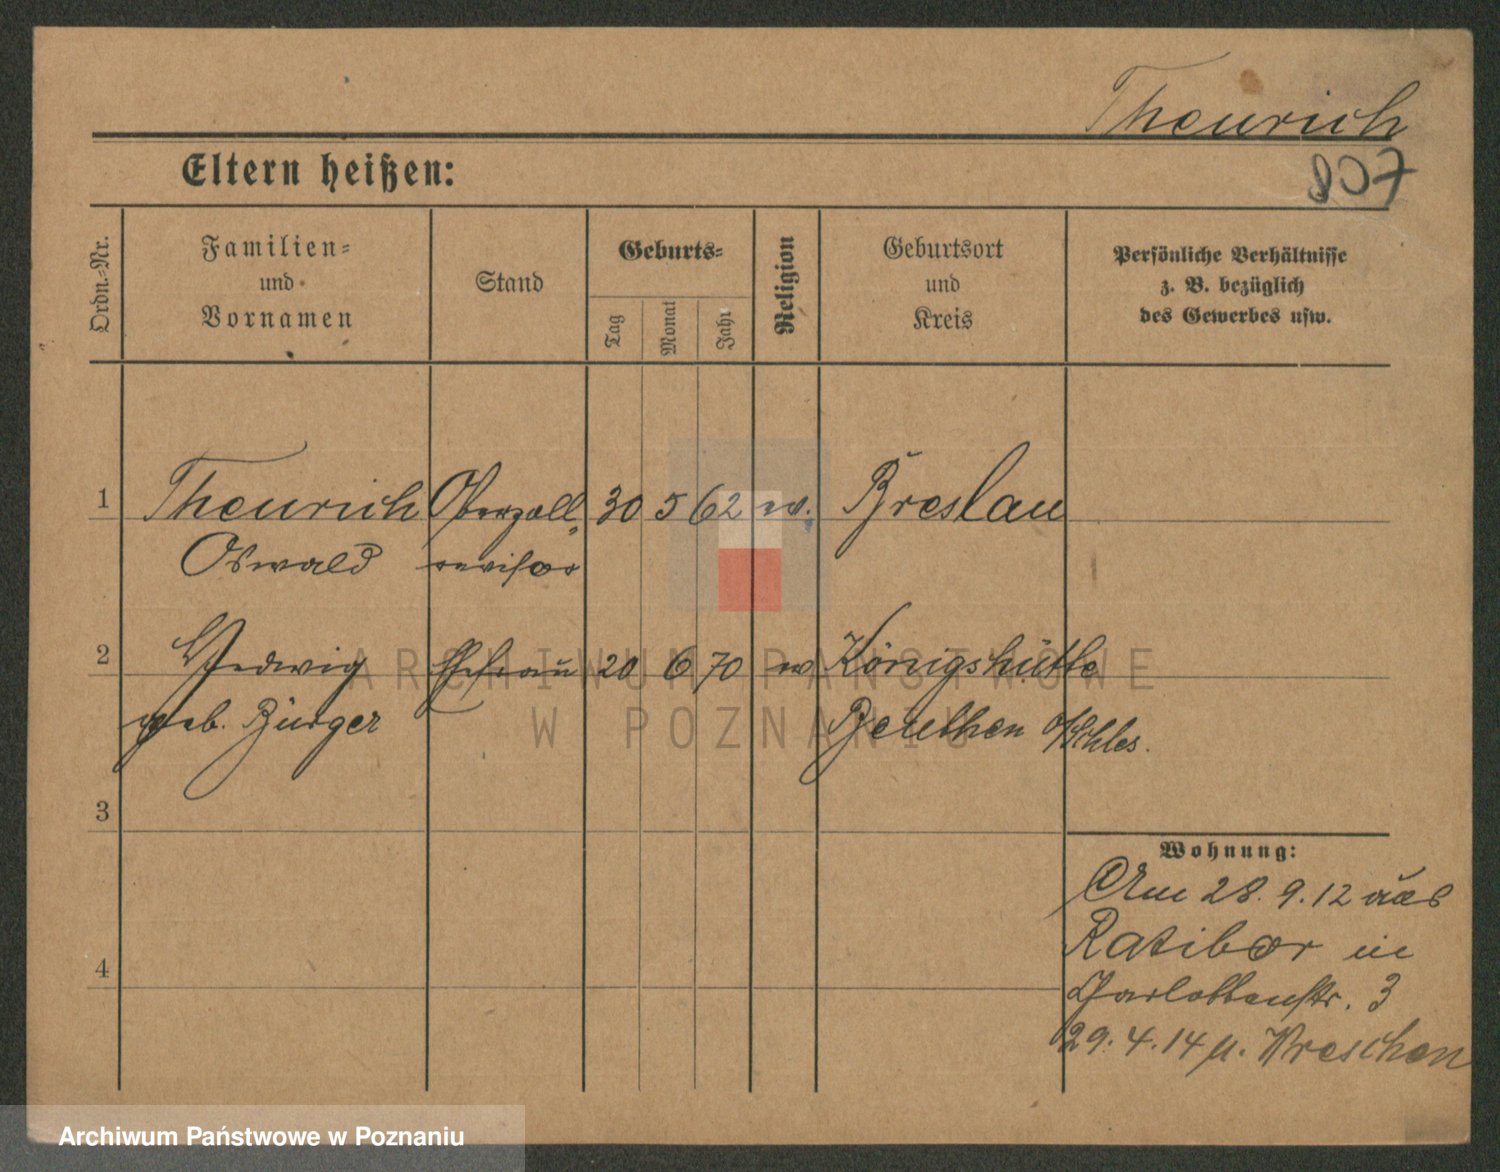 Theurich
807
Eltern heißen:
Ordn.-Nr.
Familien-
und
Vornamen
Stand
Geburts-
Tag
Monat
Jahr
Religion
Geburtsort
und
Kreis
Persönliche Verhältnisse
z. B. bezüglich
des Gewerbes usw.
1 Theurich Oberzoll- 30 5 62 ev. Breslau
Oswald revisor
2 Hedwig Ehefrau 20 6 70 ev Königshütte
geb. Bürger Beuthen O/Schles.
3
4
Wohnung:
Am 28.9.12 aus
Ratibor in
Charlottenstr. 3
29.4.14 n. Wreschen
ARCHIWUM PAŃSTWOWE
W POZNANIU
Archiwum Państwowe w Poznaniu